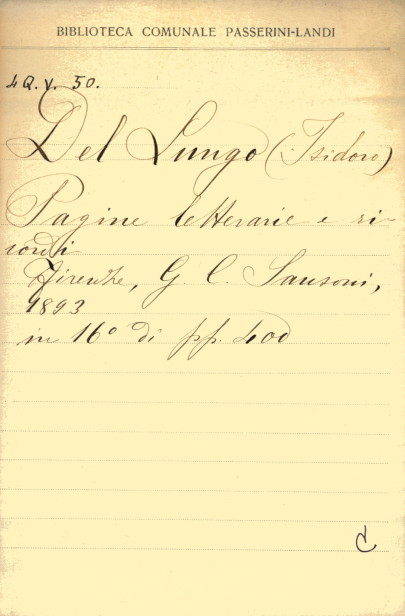 BIBLIOTECA COMUNALE PASSERINI-LANDI
4 Q. V. 50.
Del Lungo (Isidoro)
Pagine letterarie e ri-
cordi
Firenze, G. C. Sansoni,
1893
in 16° di pp. 400
C